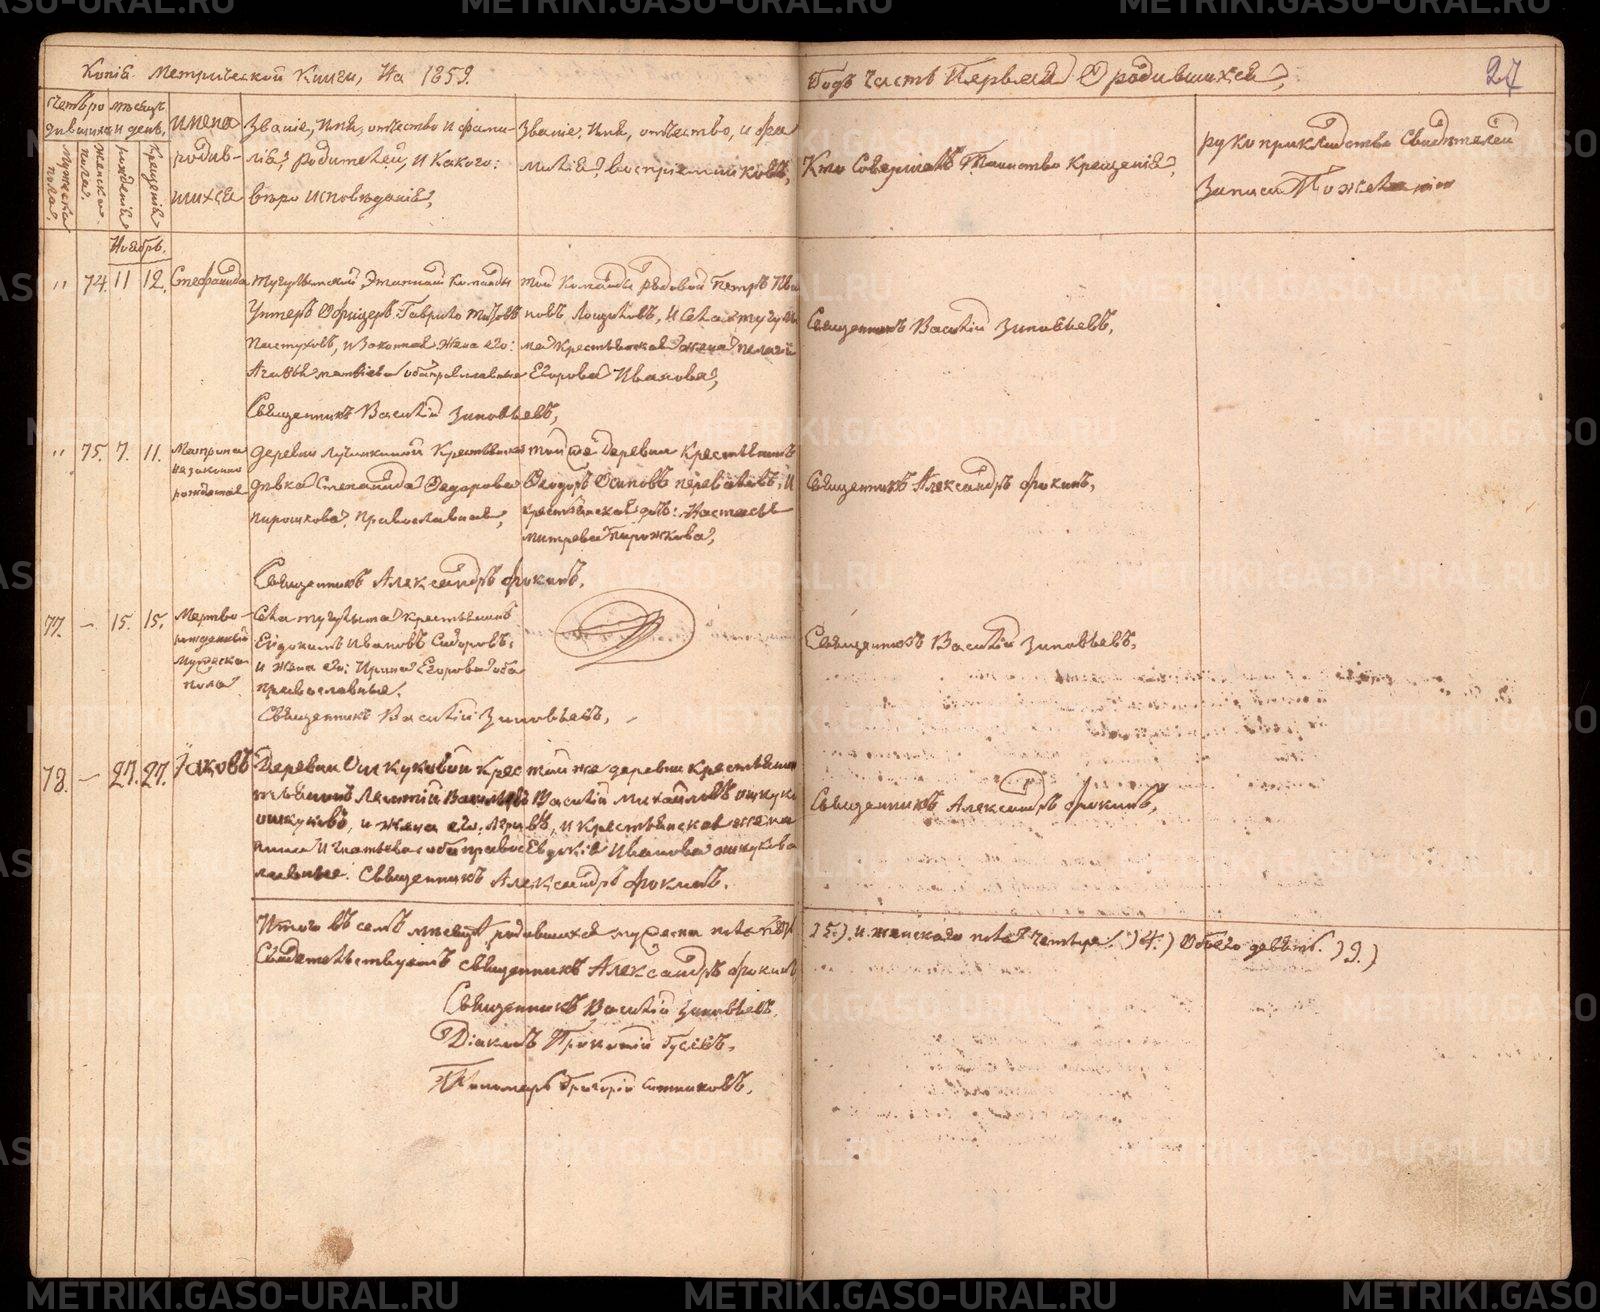 Копія Метрической Книги, На 1859.
Годъ Часть Первая О родившихся,
27
Счетъ родившихся
Мужеска пола.
Женска пола.
Месяцъ и день,
рожденія
Крещенія
имена родив-
шихся
Званіе, Имя, отчество и фами-
лія, родителей, и какого:
вѣроисповѣданія,
Званіе, Имя, отчество, и фа
милія, воспріемниковъ,
Кто Совершалъ Таинство Крещенія,
рукоприкладство Свидѣтелей
Записи По желанію
Ноябрь.
" 74. 11 12. Стефанида
Тугулымской Этапной Команды
Унтеръ Офицеръ Гаврило Титовъ
Пастуховъ, и Законная Жена его:
Агафья обаправославные
Священникъ Василій Зиновьевъ,
той Команды рядовой Петръ
новъ и Села Тугулы
ма Крестьянская жена Пелагія
Егорова Иванова,
Священникъ Василій Зиновьевъ,
" 75. 7. 11. Матрона
незаконно
рожденая
деревни Крестьянская
дѣвка Степанида Федорова
Пирошкова, Православная,
той же деревни Крестьянинъ
Феодоръ Осиповъ и
крестьянская дѣ: Настасья
митрева Пирожкова,
Священникъ Александръ Фокинъ,
Священникъ Александръ Фокинъ.
77. — 15. 15. Мертво-
рожденный
Мужеска
пола
Села Тугулыма Крестьянинъ
Евдокимъ Ивановъ Сидоровъ,
и Жена его: Ирина Егорова оба
православные.
Священникъ Василій Зиновьевъ,
Священникъ Василій Зиновьевъ,
78. — 27. 27. Іаковъ
Деревни Ошкуковой Крес
тьянинъ Леонтій Василь
ошкуковъ, и Жена его:
Игнатьева оба правос
лавные. Священникъ Александръ Фокинъ.
той же деревни Крестьянин
Василій Михайловъ ошкуко
въ, и Крестьянская жена
Евдокія Иванова ошкукова
Священникъ Александръ Фокинъ,
Итого въ семъ месяцѣ родившихся мужеска пола пять
(5.) и женскаго пола четыре (4.) Обоего девять. (9.)
Свидетельствуютъ священникъ Александръ Фокинъ
Священникъ Василій Зиновьевъ.
Діаконъ Прокопій Гусевъ.
Пономарь Григорій Ситниковъ.
METRIKI.GASO-URAL.RU